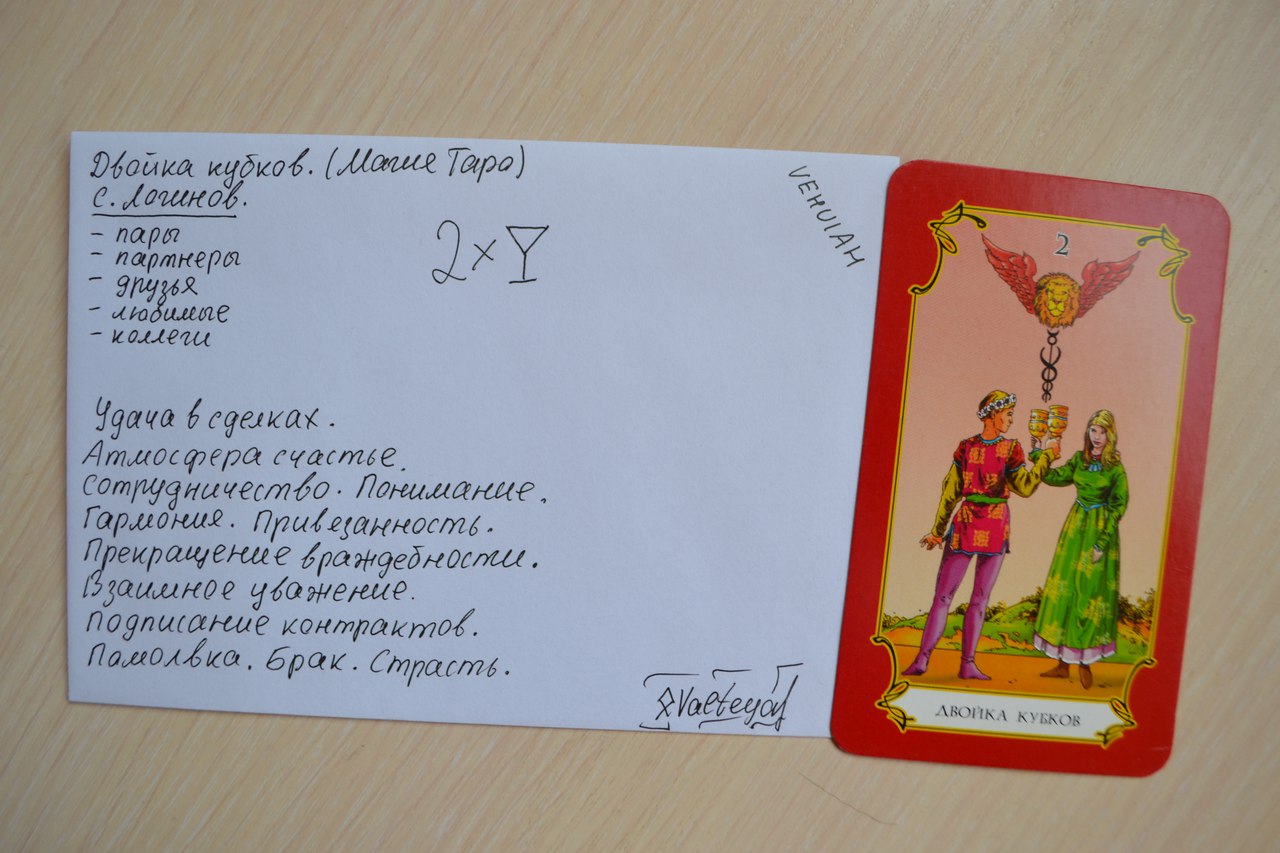 Двойка кубков. (Магия Таро)
С. Логинов.
- пары
- партнеры
- друзья
- любимые
- коллеги
2 x
VEHUIAH
Удача в сделках.
Атмосфера счастье.
Сотрудничество. Понимание.
Гармония. Привезанность.
Прекращение враждебности.
Взаимное уважение.
Подписание контрактов.
Памолвка. Брак. Страсть.
2
ДВОЙКА КУБКОВ